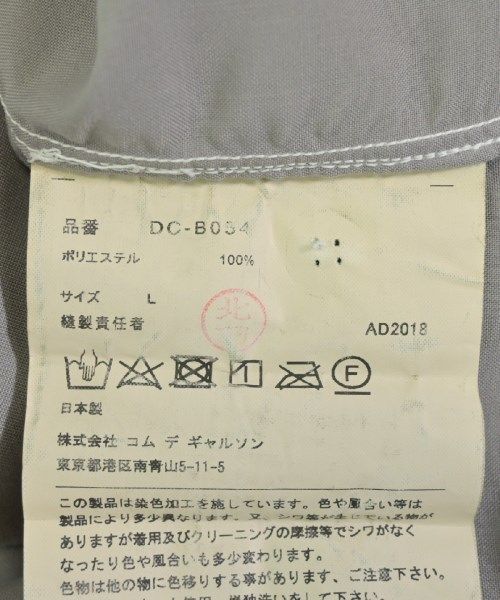 品番 DC-B034
ポリエステル 100%
サイズ L
縫製責任者 北
AD2018
F
日本製
株式会社 コム デ ギャルソン
東京都港区南青山5-11-5
この製品は染色加工を施しています。色や風合い等は
製品により多少異なります。又、シワ等が生じている物が
ありますが着用及びクリーニングの摩擦等でシワがなく
なったり色や風合いも多少変わります。
色物は他の物に色移りする事があります、ご注意下さい。